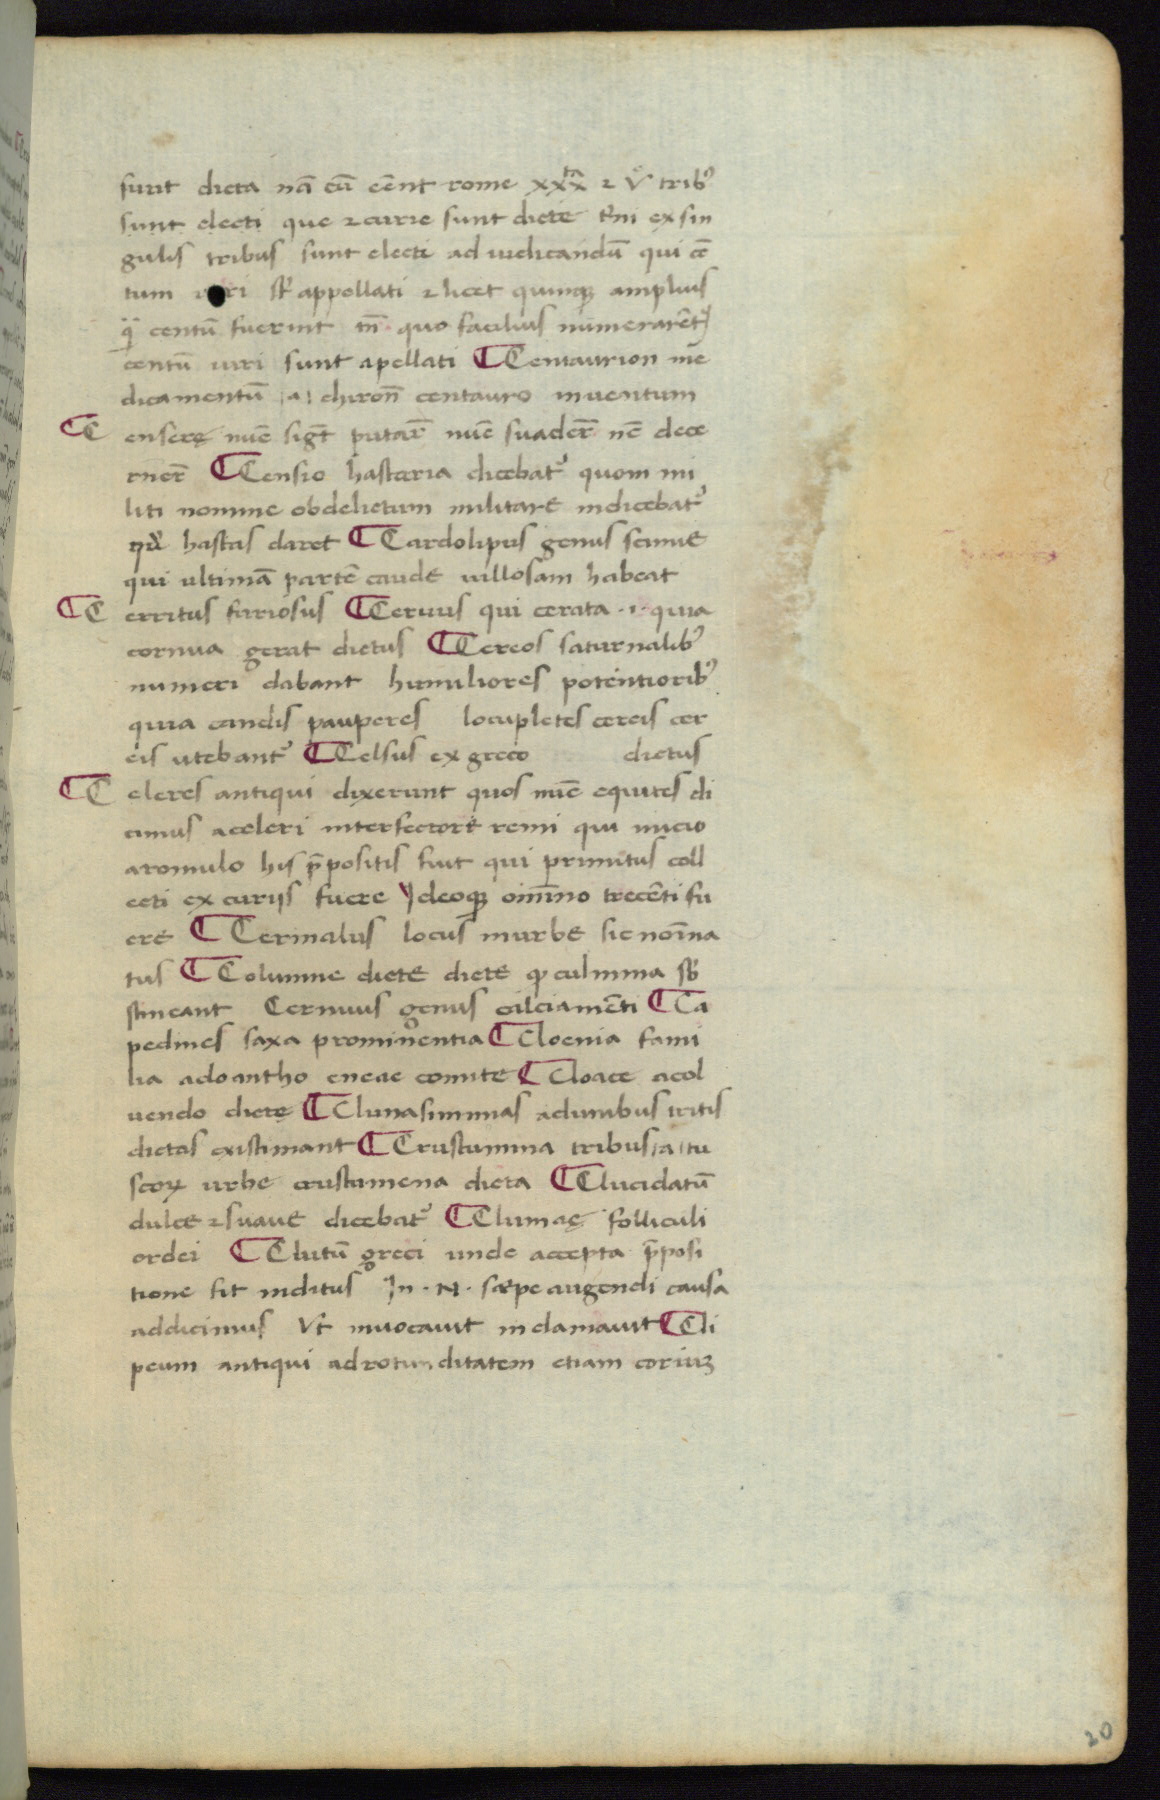 sunt dicta nā cū cēnt rome xxxᵗᵃ ⁊ Vᵒ trib⁹
sunt electi que ⁊ curie sunt dicte t̄ni ex sin
gulis tribus sunt electi ad iudicandū qui cē
tum ri st̄ appollati ⁊ licet quinqꝫ amplius
centū fuerint tn̄ quo facilius numerarēt
centū uiri sunt apellati ¶ Centaurion me
dicamentū /a/ chiron̄ centauro inuentum
¶ C ensere nūc sigt̄ putar̄ nūc suader̄ nc̄ dece
rner̄ ¶ Censio hastaria dicebat᷑ quom mi
liti nomine ob delictum militare indicebat᷑
qd̄ hastas daret ¶ Cardolipus genus scimie
qui ultimā partē caude uillosam habeat
¶ C erritus furiosus ¶ Ceruus qui cerata .i. quia
cornua gerat dictus ¶ Cereos saturnalib⁹
numeri dabant humiliores potentiorib⁹
quia candis pauperes locupletes cereis cer
eis utebant᷑ ¶ Celsus ex greco dictus
¶ C eleres antiqui dixerunt quos nūc equites di
cimus a celeri interfectore remi qui inicio
a romulo his p̄positis fuit qui primitus coll
ecti ex curijs fuere Ideoqꝫ omīno trecēti fu
ere ¶ Cermalus locus in urbe sic noīna
tus ¶ Columne dicte dicte ꝙ culmina sb̄
stineant Cernuus genus calciamēti ¶ Ca
pedines saxa prominentia ¶ Cloenia fami
lia a doantho eneae comite ¶ Cloace a col
uendo dicte ¶ Clunas simias a clunibus tritis
dictas existimant ¶ Crustumina tribus /a/ tu
scoꝝ urbe crustumena dicta ¶ Clucidatū
dulce ⁊ suaue dicebat᷑ ¶ Clumae folliculi
ordei ¶ Clutū greci unde accepta p̄posi
tione fit inclitus In .N. saepe augendi causa
addicimus Vt inuocauit inclamauit ¶ Cli
peum antiqui ad rotunditatem etiam coriuꝫ
20